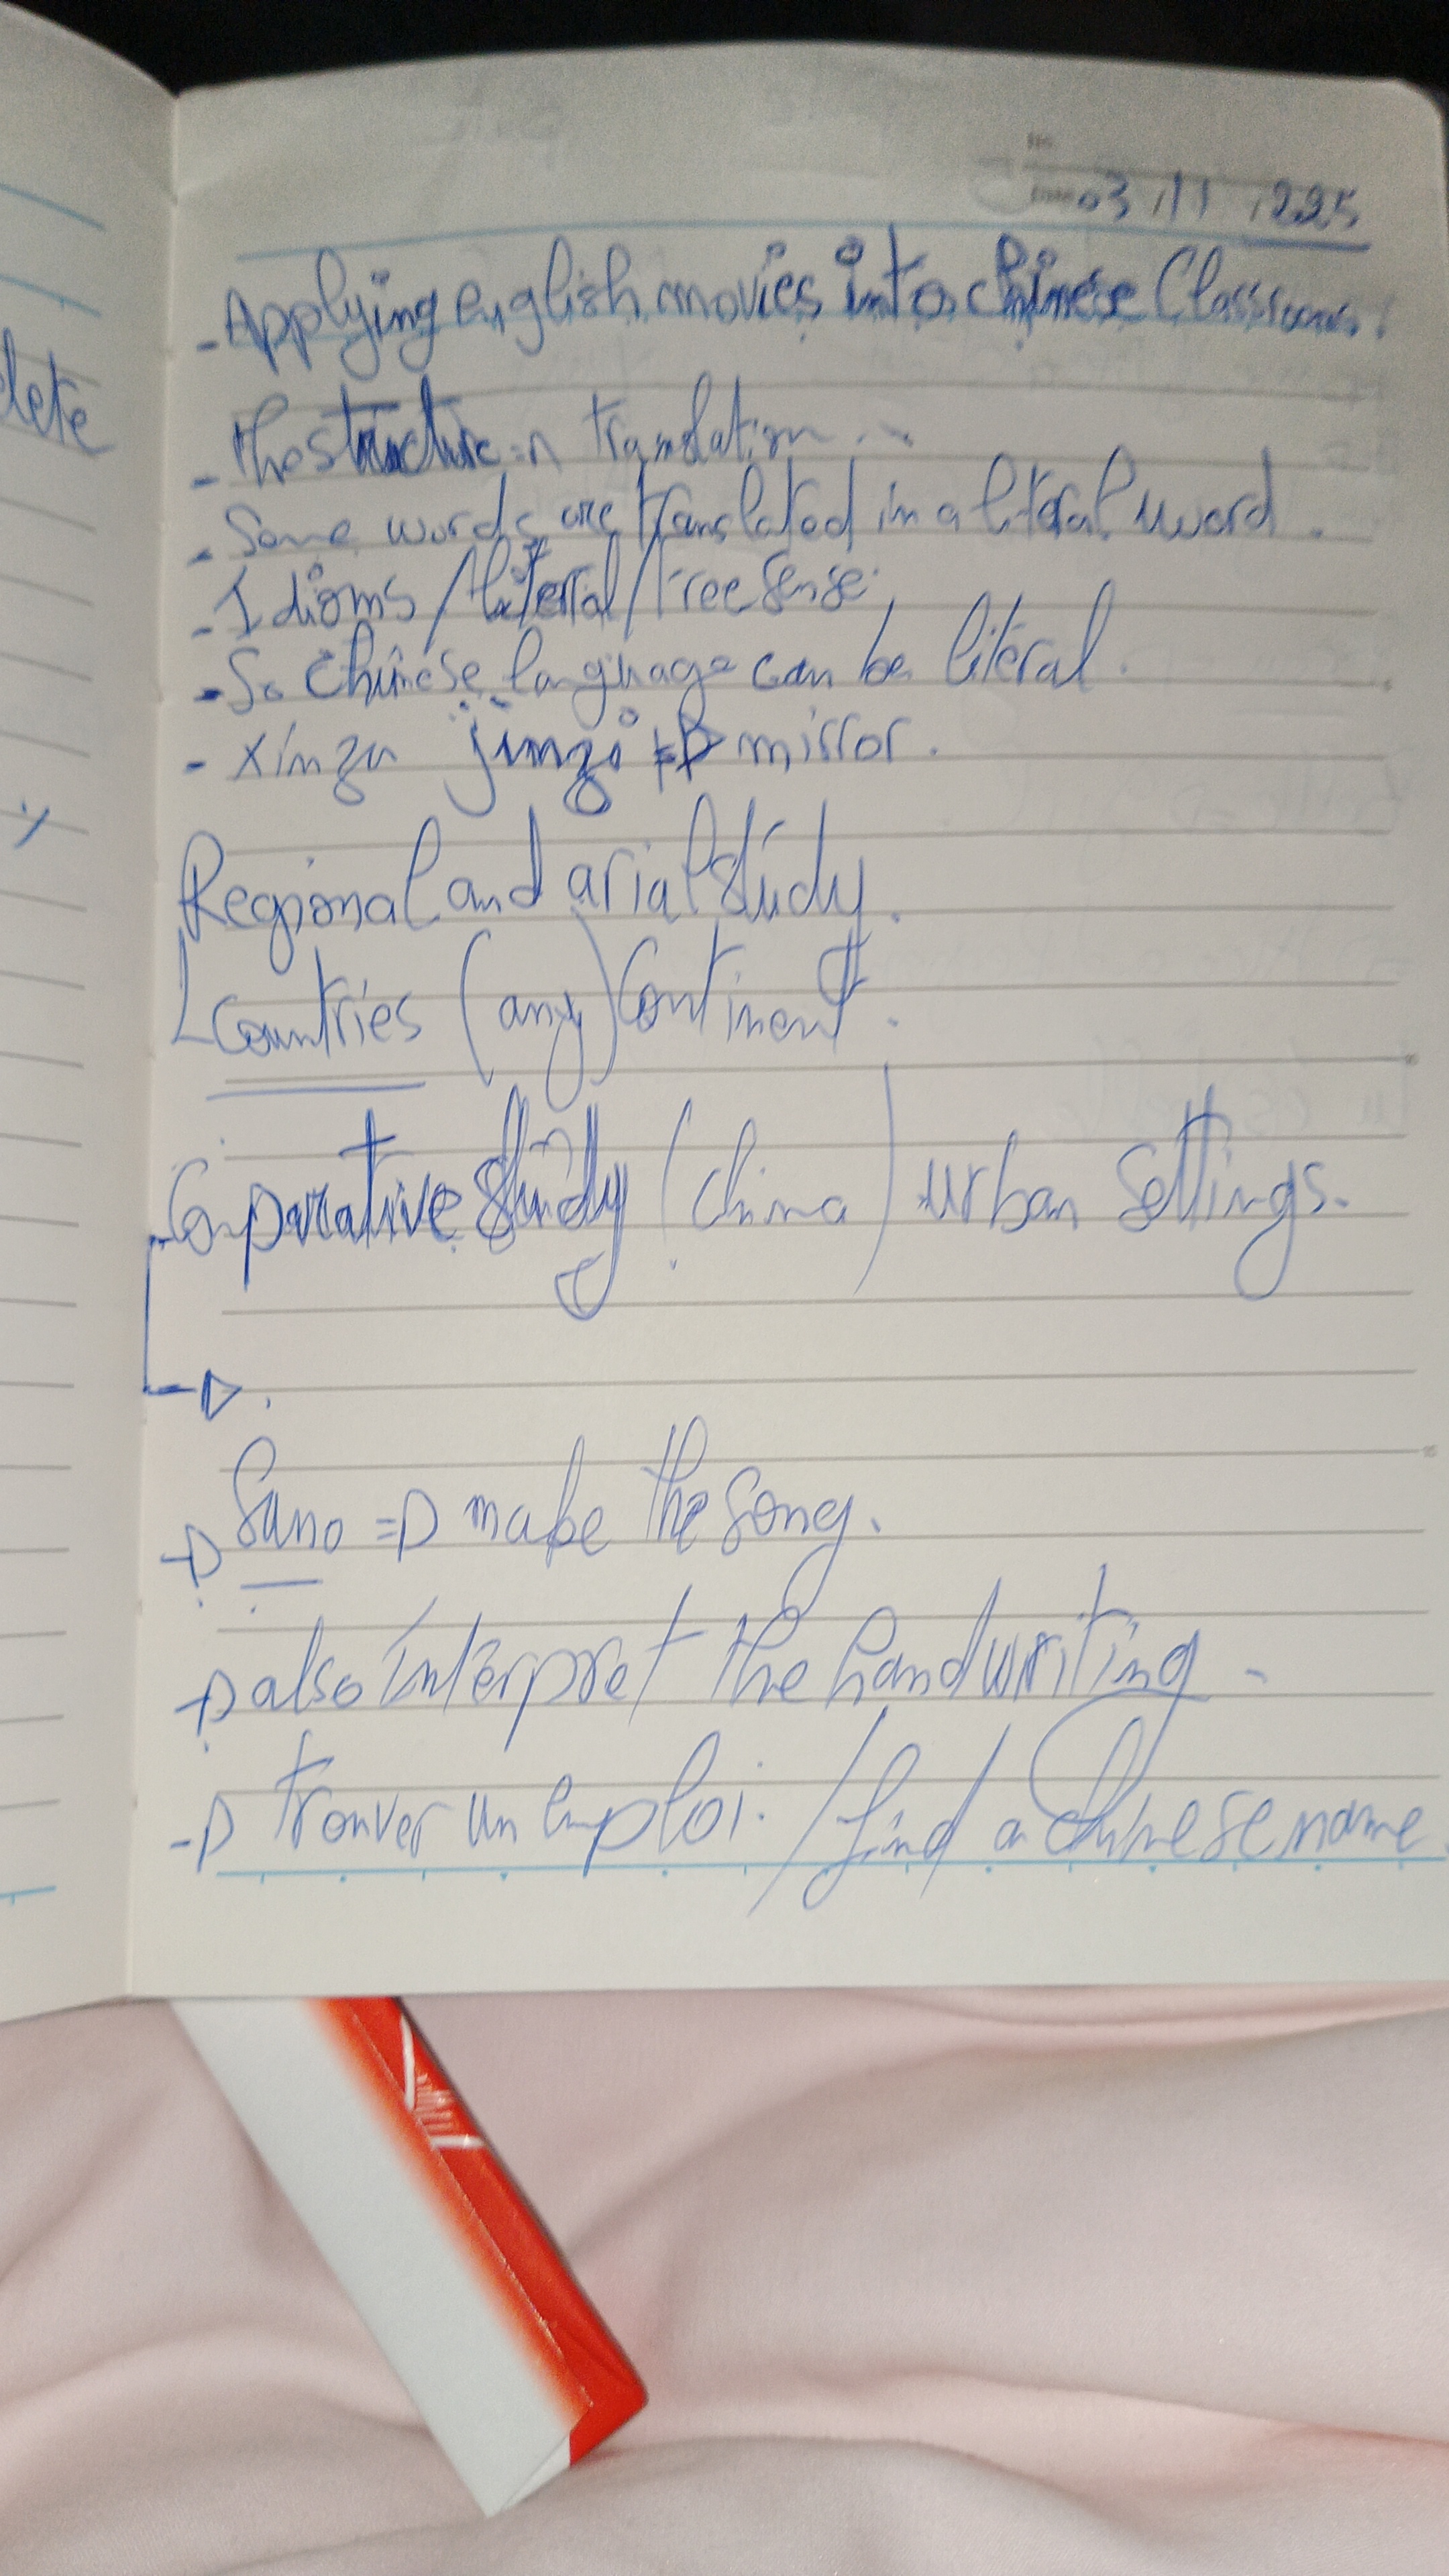 lete
03 / 11 / 225
- Applying english movies into chinese Classrooms.
- The structure =D translation ...
- Some words are translated in a literal word.
- Idioms / literal / Free sense.
- So chinese language can be literal.
- xinzu jingzi =D mirror.
Regional and arial study.
Countries (any) Continent.
Comparative study (china) urban settings.
-D Suno =D make the song.
-D also interpret the handwriting.
-D trouver un emploi. / find a chinese name